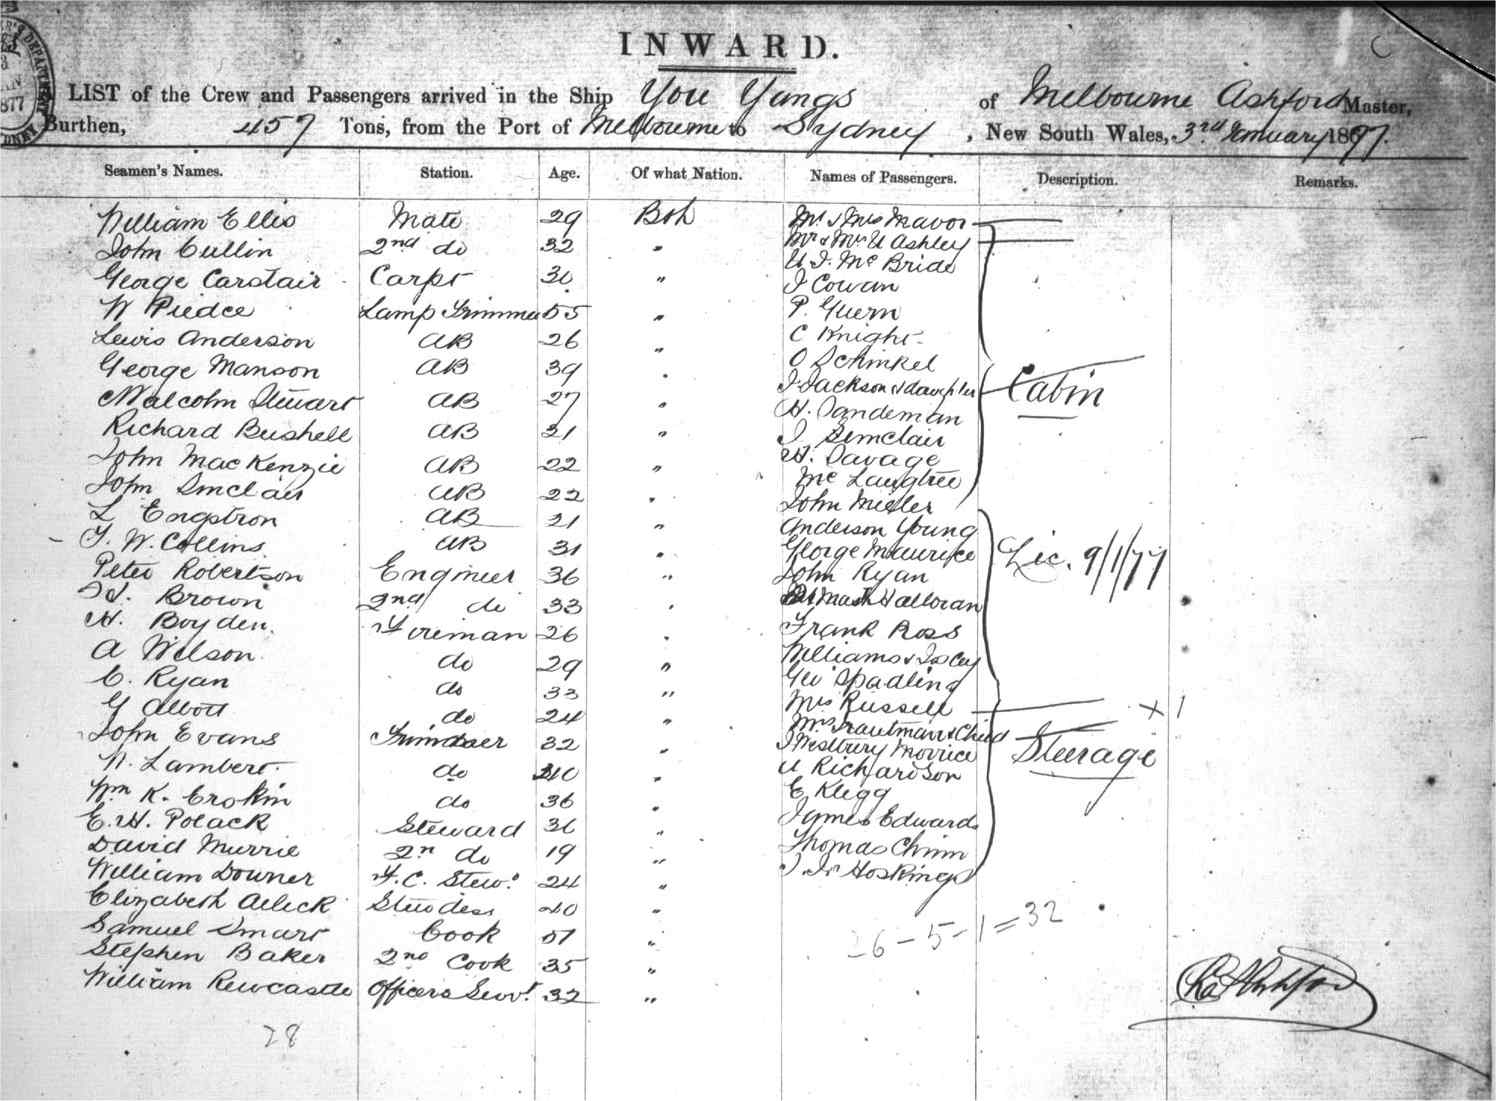 INWARD.
LIST of the Crew and Passengers arrived in the Ship You Yangs of Melbourne Ashford Master,
Burthen, 457 Tons, from the Port of Melbourne to Sydney, New South Wales, 3rd January 1877.
Seamen's Names. Station. Age. Of what Nation. Names of Passengers. Description. Remarks.
William Ellis Mate 29 Brh Mr & Mrs Mavor
John Cullin 2nd do 32 " Mr & Mrs U Ashley
U. J. McBride
George Carstair Carpr 30 " J Cowan
W Piedce Lamp Trimmer 55 " P. Guern
Lewis Anderson AB 26 " C Knight
O Schinkel
George Manson AB 39 " J Jackson & daughter
Cabin
Malcolm Stuart AB 27 " H. Sandeman
Richard Bushell AB 21 " J Simclair
John MacKenzie AB 22 " H. Savage
McLaugtree
John Sinclair AB 22 " John Miller
L Engstron AB 21 " Anderson Young
T. W. Collins AB 31 " George Maurice
Lic. 9/1/77
Peter Robertson Engineer 36 " John Ryan
Brown 2nd do 33 " Halloran
H. Boyden Fireman 26 " Frank Ross
A Wilson do 29 " Williams &
C. Ryan do 33 " Geo Spadling
G Abbott do 24 " Mrs Russell x 1
Mrs Trautman & Child
John Evans Trimmer 32 " J Westbury Morrice
Steerage
W. Lambert do 40 " U Richardson
Wm K. Erskin do 36 " E Klegg
E. H. Polack Steward 36 " James Edwards
David Murrie 2nd do 19 " Thomas Chinn
William Downer F. C. Stewd 24 " J. Hoskings
Elizabeth Stewdess 40 "
26-5-1=32
Samuel Smart Cook 51 "
Stephen Baker 2nd Cook 35 "
William Newcastle Officers Servt 32 "
Ashford
28